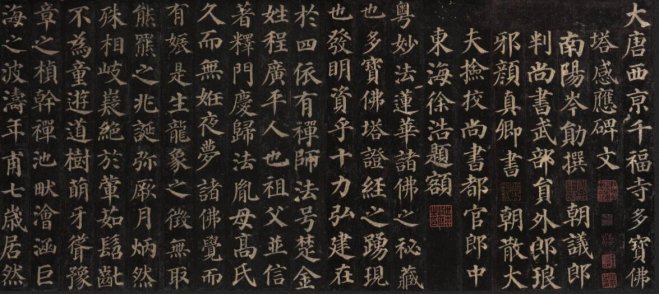 大唐西京千福寺多寶佛
塔感應碑文
南陽岑勛撰 朝議郎
判尚書武部員外郎琅
邪顏真卿書 朝散大
夫撿校尚書都官郎中
東海徐浩題額
粵妙法蓮華諸佛之秘藏
也多寶佛塔證經之踴現
也發明資乎十力弘建在
於四依有禪師法号楚金
姓程廣平人也祖父並信
著釋門慶歸法胤母高氏
久而無姙夜夢諸佛覺而
有娠是生龍象之徵無取
熊羆之兆誕弥厥月炳然
殊相岐嶷絕於葷茹髫齓
不為童遊道樹萌牙聳豫
章之楨幹禪池畎澮涵巨
海之波濤年甫七歲居然